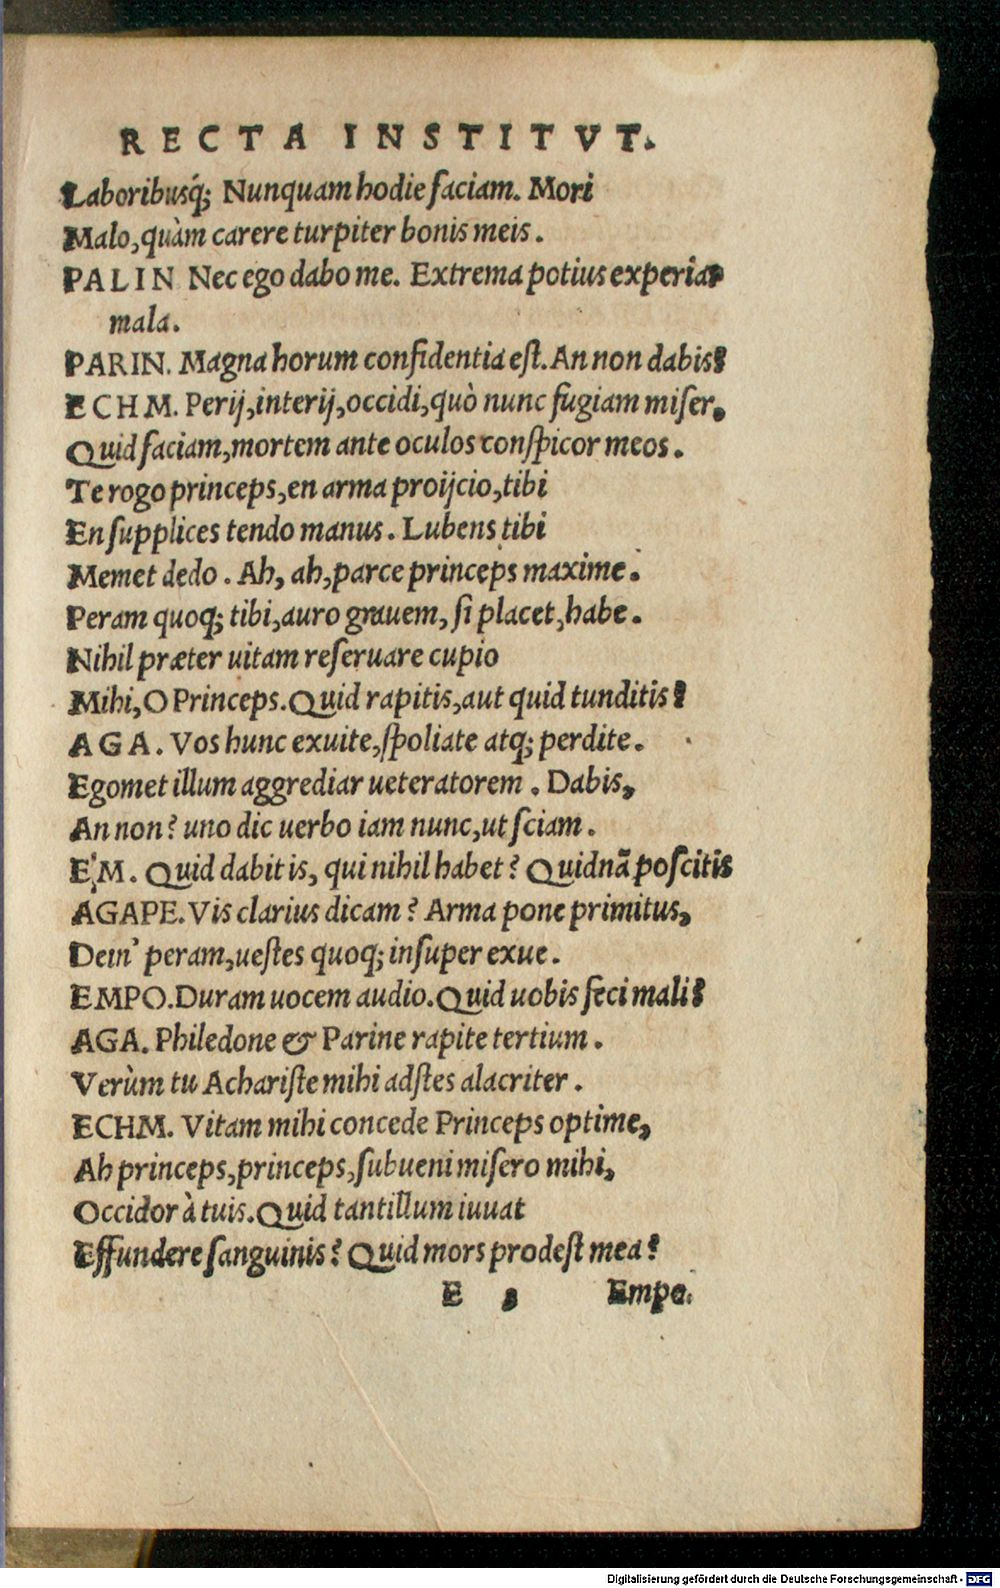 RECTA INSTITVT.
Laboribusq́; Nunquam hodie faciam. Mori
Malo, quàm carere turpiter bonis meis.
PALIN Nec ego dabo me. Extrema potius experiar
mala.
PARIN. Magna horum confidentia eſt. An non dabis?
ECHM. Perij, interij, occidi, quò nunc fugiam miſer,
Quid faciam, mortem ante oculos conſpicor meos.
Te rogo princeps, en arma proijcio, tibi
En ſupplices tendo manus. Lubens tibi
Memet dedo. Ah, ah, parce princeps maxime.
Peram quoq; tibi, auro grauem, ſi placet, habe.
Nihil præter uitam reſeruare cupio
Mihi, O Princeps. Quid rapitis, aut quid tunditis?
AGA. Vos hunc exuite, ſpoliate atq; perdite.
Egomet illum aggrediar ueteratorem. Dabis,
An non? uno dic uerbo iam nunc, ut ſciam.
EM. Quid dabit is, qui nihil habet? Quidnã poſcitis
AGAPE. Vis clarius dicam? Arma pone primitus,
Dein' peram, ueſtes quoq; inſuper exue.
EMPO. Duram uocem audio. Quid uobis feci mali?
AGA. Philedone & Parine rapite tertium.
Verùm tu Achariſte mihi adſtes alacriter.
ECHM. Vitam mihi concede Princeps optime,
Ah princeps, princeps, ſubueni miſero mihi,
Occidor à tuis. Quid tantillum iuuat
Effundere ſanguinis? Quid mors prodeſt mea?
E Empo.
Digitalisierung gefördert durch die Deutsche Forschungsgemeinschaft - DFG